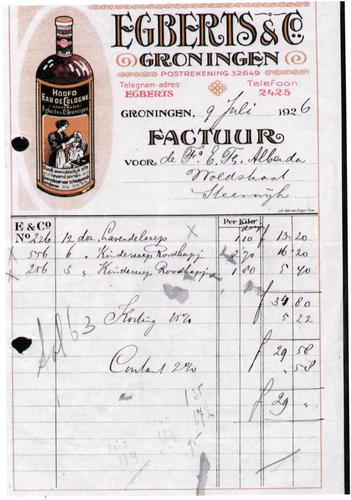 EGBERTS & Co.
GRONINGEN
POSTREKENING 32649
Telegram-adres: EGBERTS
Telefoon: 2425
HOOFD
EAU DE COLOGNE
Egberts & Co. Groningen
GRONINGEN, 9 Juli 1926
FACTUUR
VOOR, de Fa. E. Th. Alberda
Woldstraat
Steenwijk
E & Co Per Kilo dozijn
No 226 12 doz Lavendelzeep 1.10 f 13 20
556 6 " Kinderzeep Roodkapj 2.70 16 20
256 3 " Kinderzeep Roodkapje 1.80 5 40
f 34 80
Korting 15% 5 22
f 29 58
Contant 2% " 58
f 29 "
63